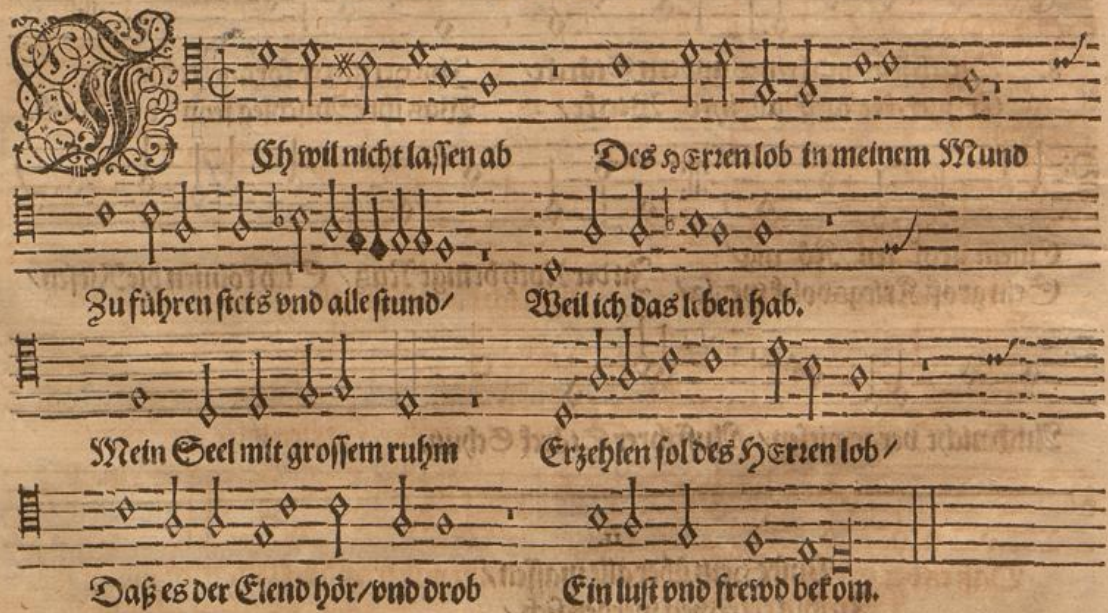 ICh wil nicht lassen ab Des HErren lob in meinem Mund
Zu führen stets vnd alle stund/ Weil ich das leben hab.
Mein Seel mit grossem ruhm Erzehlen sol des HErren lob/
Daß es der Elend hör/vnd drob Ein lust vnd frewd bekom.